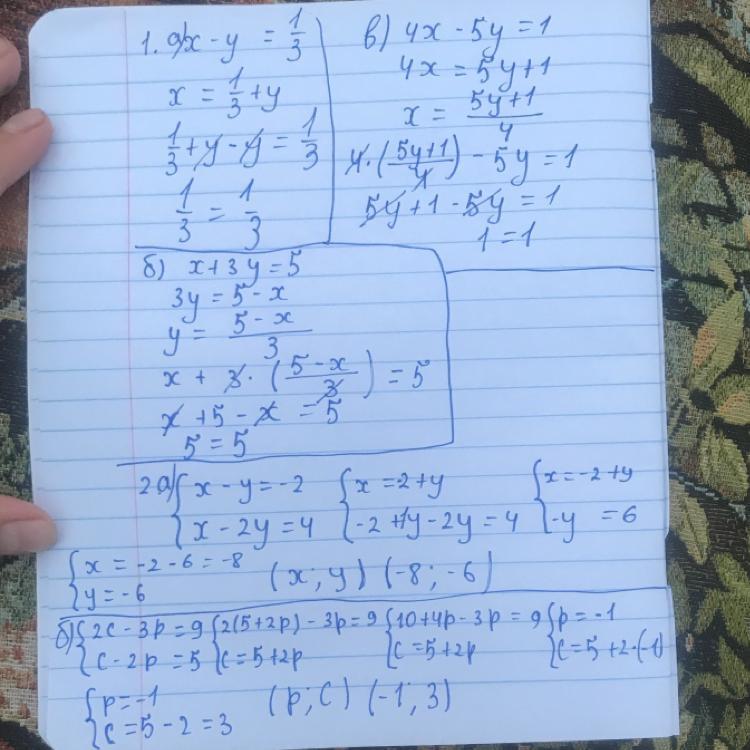 1. а) x - y = 1/3
x = 1/3 + y
1/3 + y - y = 1/3
1/3 = 1/3
в) 4x - 5y = 1
4x = 5y + 1
x = (5y+1)/4
4·((5y+1)/4) - 5y = 1
5y + 1 - 5y = 1
1 = 1
б) x + 3y = 5
3y = 5 - x
y = (5 - x)/3
x + 3·((5 - x)/3) = 5
x + 5 - x = 5
5 = 5
2 а) { x - y = -2 { x = 2 + y { x = -2 + y
{ x - 2y = 4 { -2 + y - 2y = 4 { -y = 6
{ x = -2 - 6 = -8
{ y = -6 (x; y) (-8; -6)
б) { 2c - 3p = 9 { 2(5+2p) - 3p = 9 { 10 + 4p - 3p = 9 { p = -1
{ c - 2p = 5 { c = 5 + 2p { c = 5 + 2p { c = 5 + 2·(-1)
{ p = -1
{ c = 5 - 2 = 3 (p; c) (-1; 3)